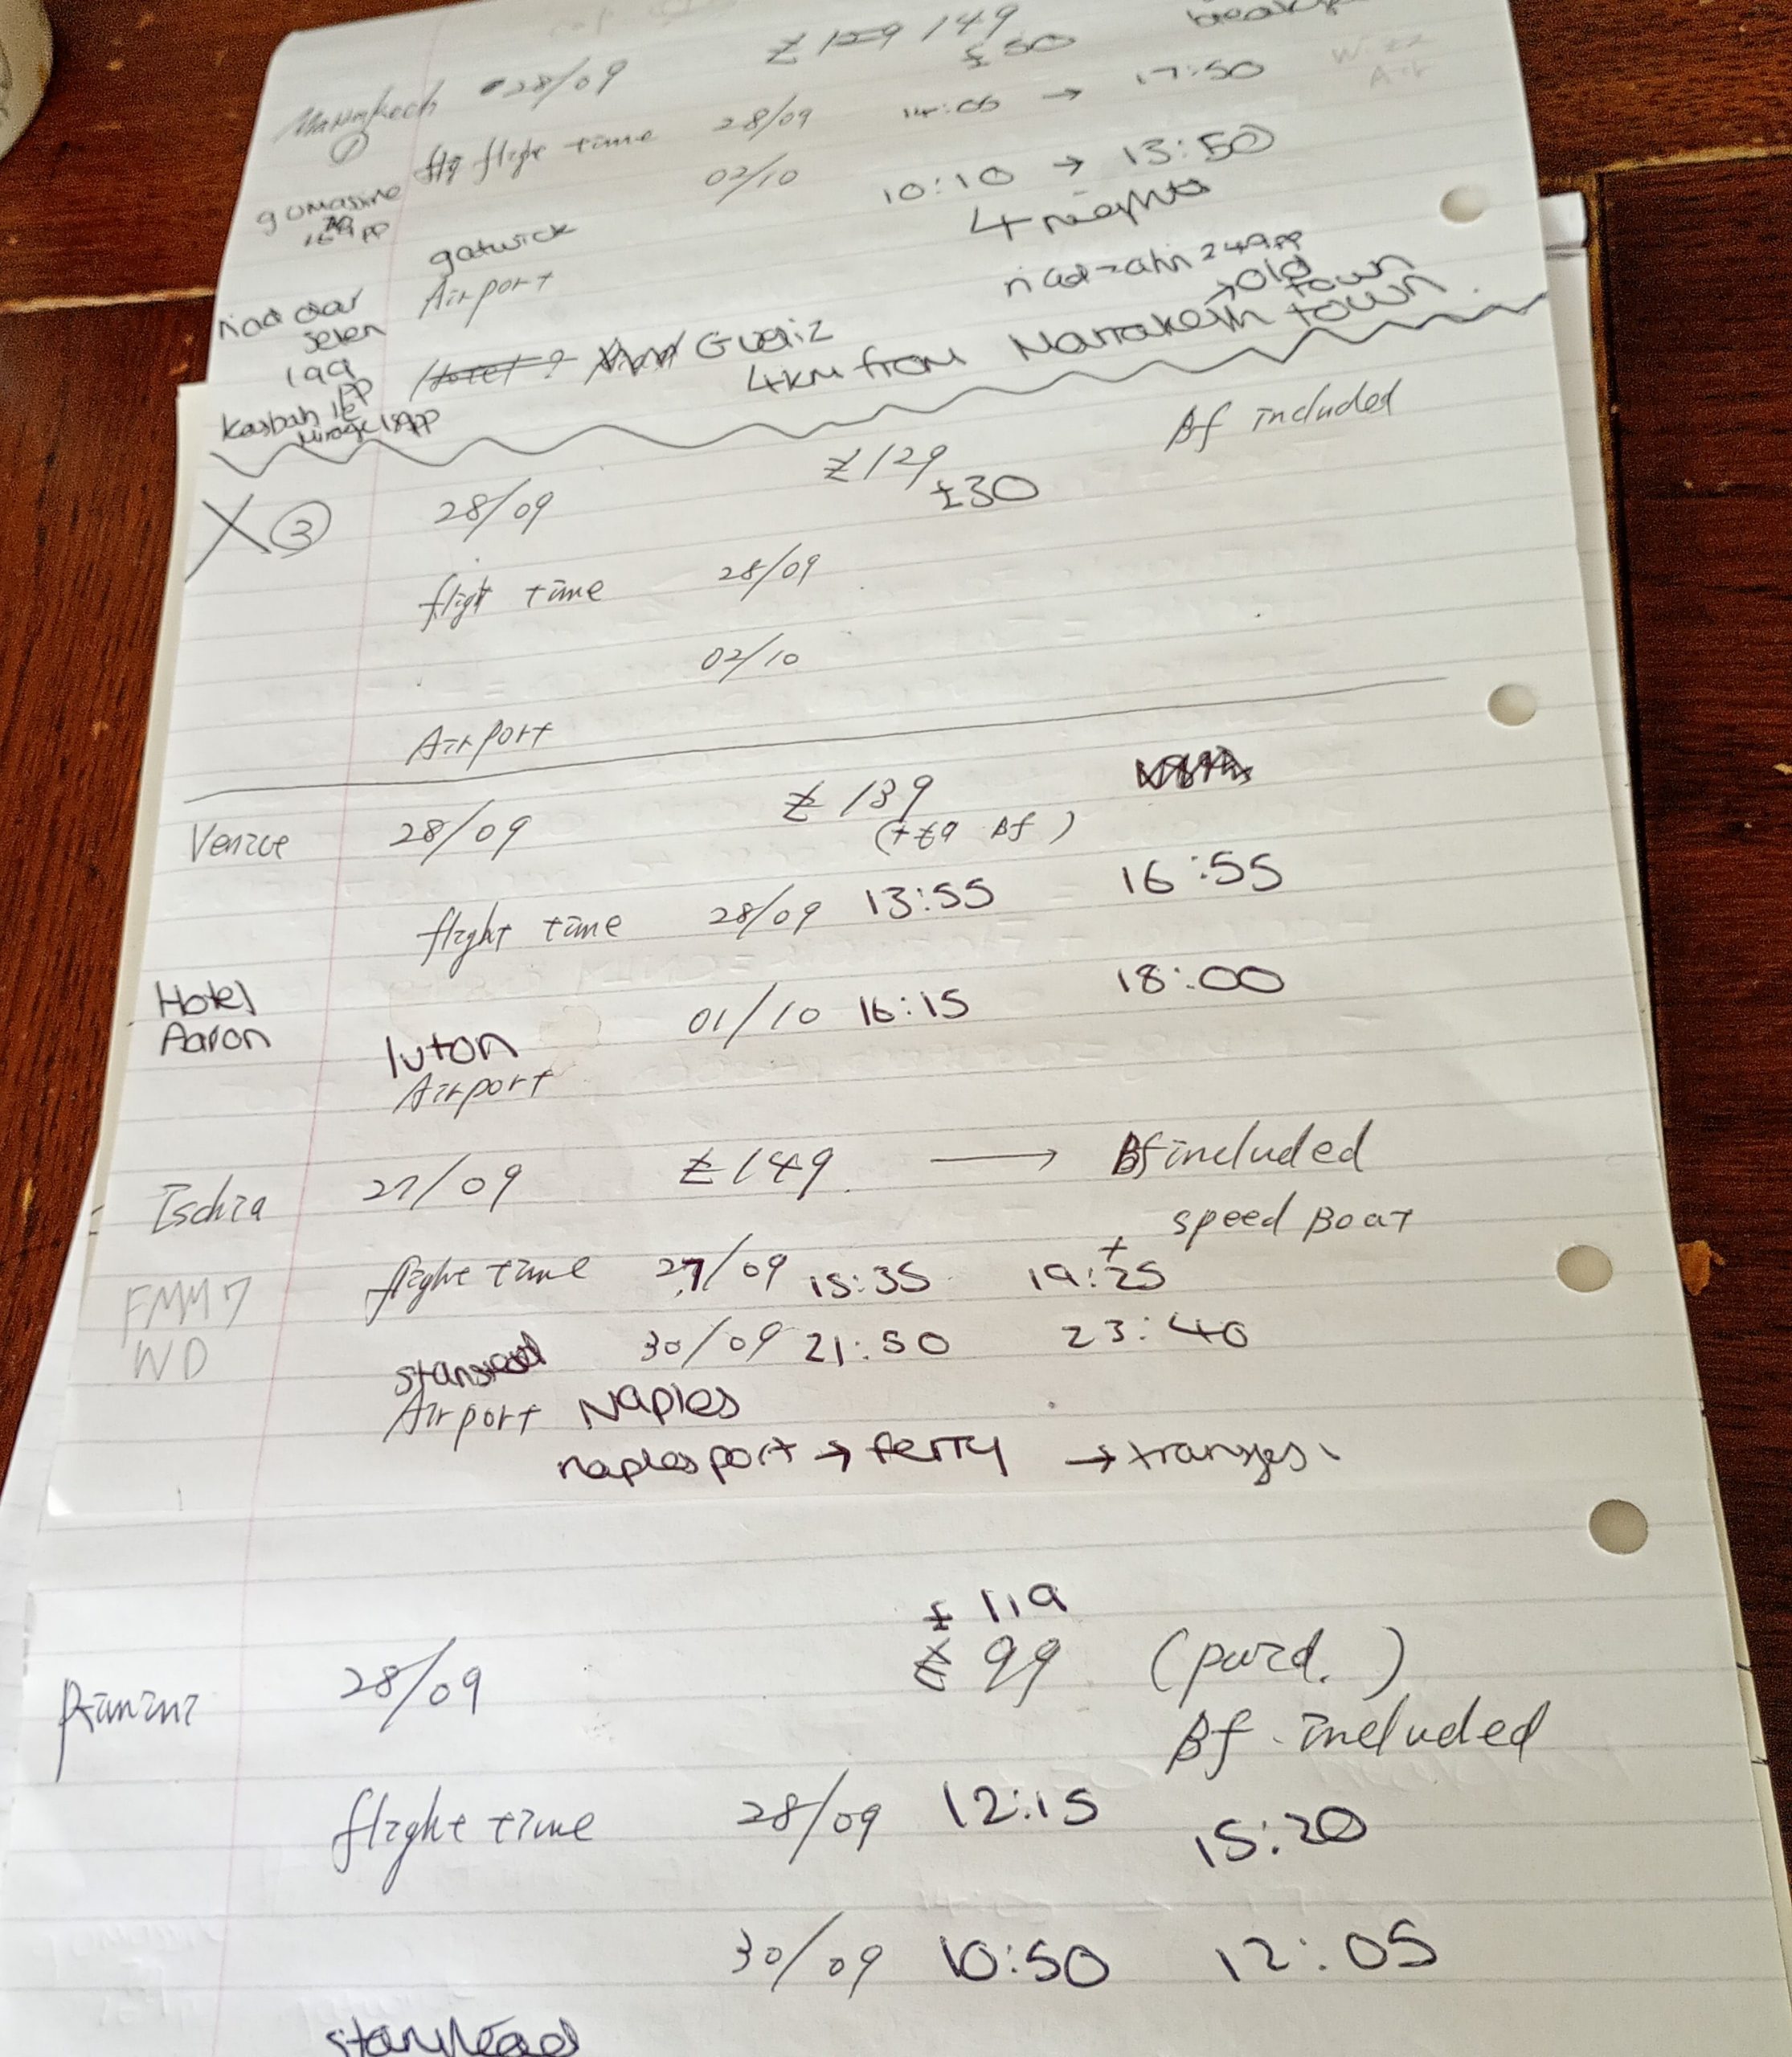 £ 149
£50
Marrakech 28/09
①
flight time 28/09 14:05 → 17:50
Wizz
Air
02/10 10:10 → 13:50
4 nights
gomassine
pp
gatwick
Airport
riad zahr 249pp
→ old
town
riad dar
selen
199
PP
Gueliz
4km from Marrakesh town
kasbah le
mirage 189pp
X ③ 28/09 £129 Bf included
£30
flight time 28/09
02/10
Airport
Venice 28/09 £139
(+£9 Bf)
flight time 28/09 13:55 - 16:55
01/10 16:15 18:00
Hotel
Aaron
luton
Airport
Ischia 27/09 £149 → Bf included
+ speed Boat
flight time 27/09 15:35 19:25
FMM7
WD
30/09 21:50 23:40
stansted
Airport Naples
naples port → ferry → transfes.
£ 119
Rimini 28/09 £ 99
Bf included
flight time 28/09 12:15 15:20
30/09 10:50 12:05
stanstead